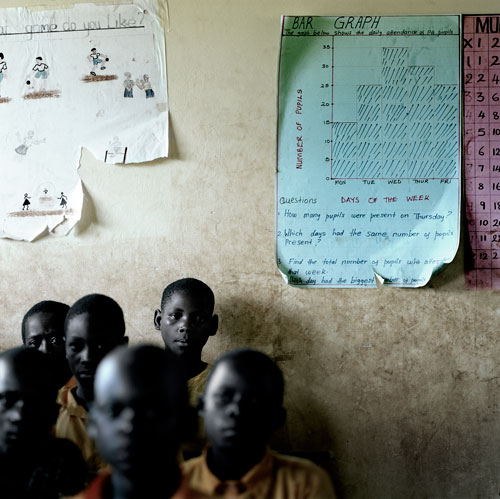 at game do you like?
BAR GRAPH
The graph below shows the daily attendance of P.4 pupils
35
30
25
20
15
10
5
0
NUMBER OF PUPILS
MON TUE WED THUR FRI
DAYS OF THE WEEK
Questions
1 How many pupils were present on Thursday?
2 Which days had the same number of pupils
Present?
3 Find the total number of pupils who
that week.
day had the biggest of
MU
X 1 2
1 1 2
2 2 4
3 3 6
4 4 8
5 5 10
6 6 12
7
8
9
10
12